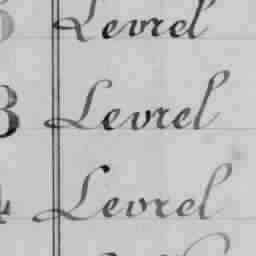 Levrel
3 Levrel
4 Levrel